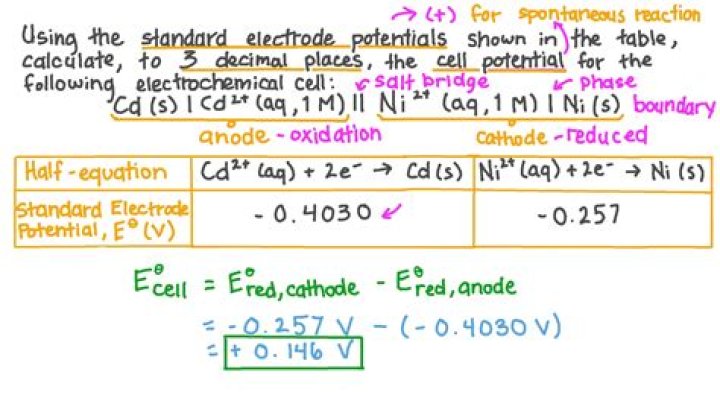 → (+) for spontaneous reaction
Using the standard electrode potentials shown in the table,
calculate, to 3 decimal places, the cell potential for the
following electrochemical cell: ↙ salt bridge ↙ phase
Cd (s) | Cd²⁺ (aq, 1 M) || Ni²⁺ (aq, 1 M) | Ni (s) boundary
anode - oxidation cathode - reduced
Half-equation Cd²⁺ (aq) + 2e⁻ → Cd (s) Ni²⁺ (aq) + 2e⁻ → Ni (s)
Standard Electrode
Potential, E° (V) - 0.4030 ↙ -0.257
E°cell = E°red, cathode - E°red, anode
= - 0.257 V - (- 0.4030 V)
= + 0.146 V